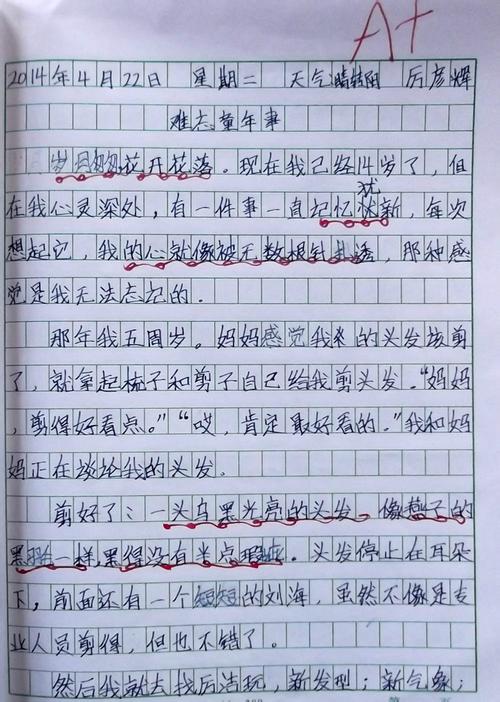 A+
2014年4月22日 星期二 天气晴转阴 厉彦辉
难忘童年事
岁月匆匆花开花落。现在我已经14岁了，但
在我心灵深处，有一件事一直记忆犹新，每次
想起它，我的心就像被无数根针扎透，那种感
觉是我无法忘记的.
那年我五周岁。妈妈感觉我的头发该剪
了，就拿起梳子和剪子自己给我剪头发.“妈妈
，剪得好看点。”“哎，肯定最好看的.”我和妈
妈正在谈论我的头发.
剪好了：一头乌黑光亮的头发，像燕子的
黑羽一样,黑得没有半点瑕疵。头发停止在耳朵
下，前面还有一个短短的刘海，虽然不像是专
业人员剪得，但也不错了。
然后我就去找厉洁玩，新发型；新气象；